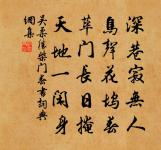 深巷寂無人
鳥聲花塢春
蓽門長日掩
天地一閒身
吳柔勝柴門春書詞典
網集